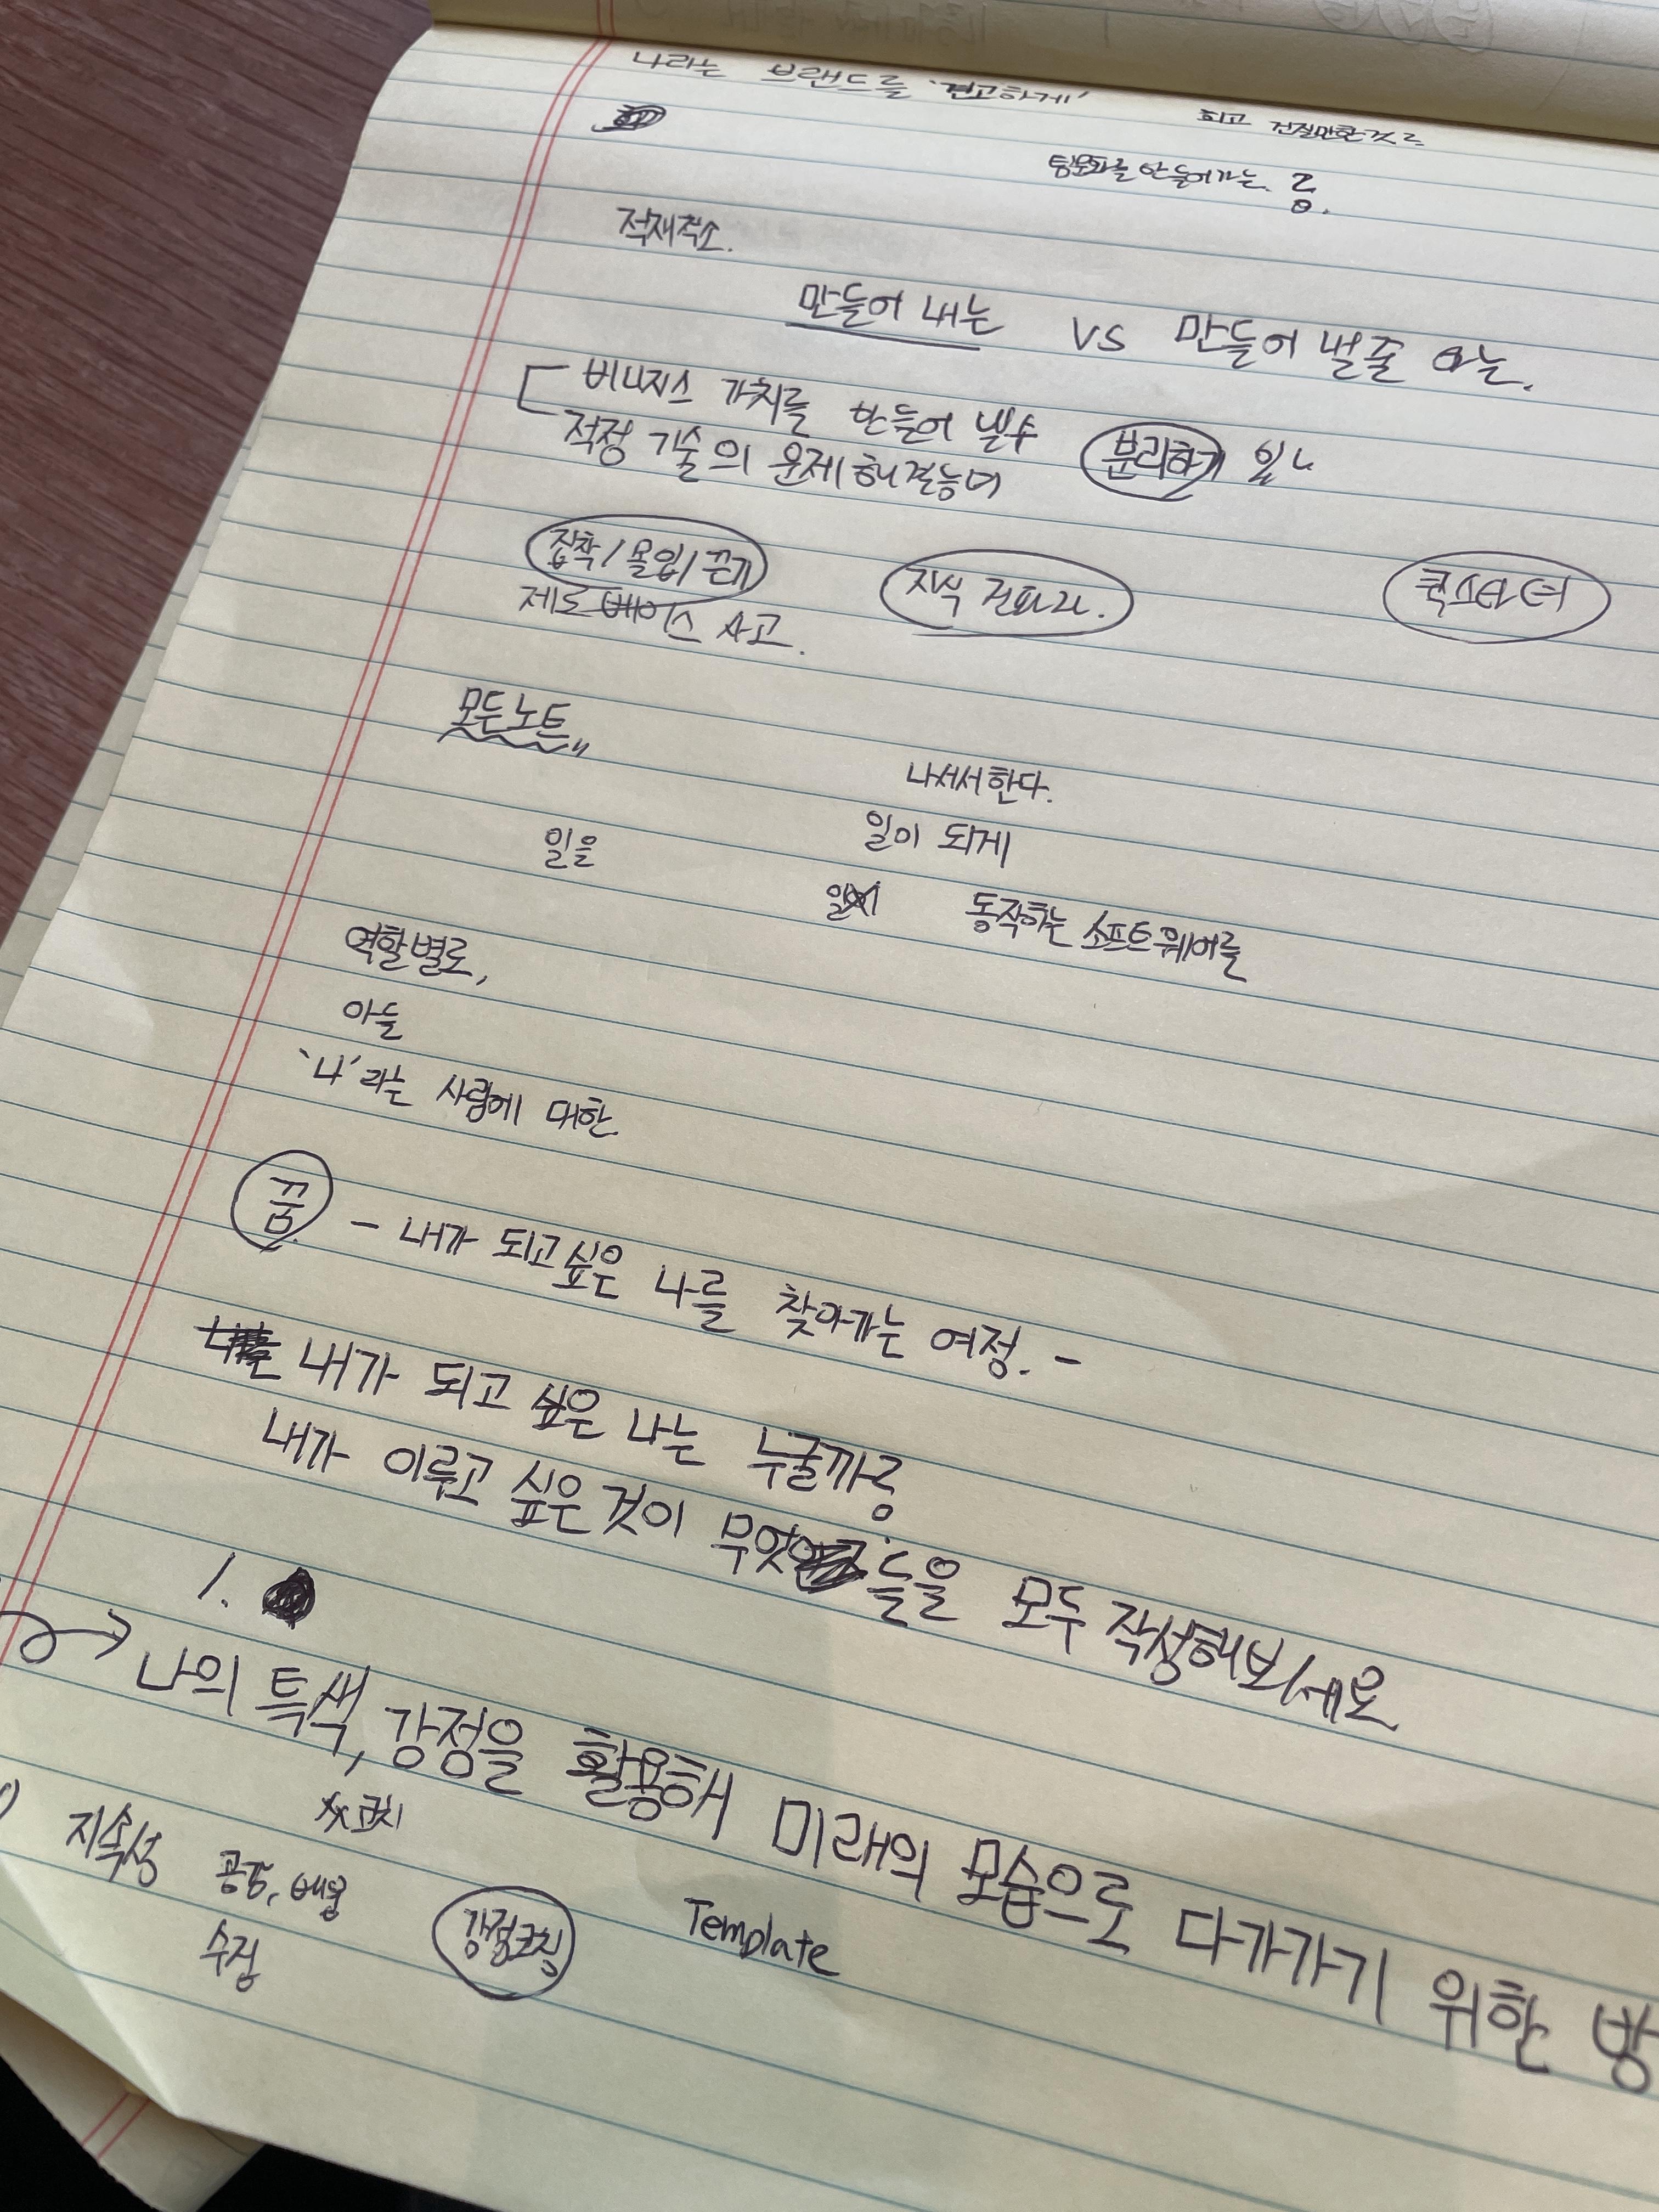 나라는 브랜드를 '견고하게'
회고
팀문화를 만들어가는.
적재적소.
만들어 내는 vs 만들어 낼줄 아는.
비니지스 가치를 만들어 낼수
적정 기술의 문제해결능력
분리하기
집착/몰입/끈기
지식 전파자.
퀵스타터
제로베이스 사고.
모두노트
나서서한다.
일을
일이 되게
동작하는 소프트웨어를
역할별로,
아들
'나'라는 사람에 대한
꿈 - 내가 되고싶은 나를 찾아가는 여정. -
내가 되고 싶은 나는 누굴까?
내가 이루고 싶은것이 무엇 들을 모두 작성해보세요
1.
나의 특색, 강점을 활용해 미래의 모습으로 다가가기 위한 방
코치
지속성
수정
강점코칭
Template